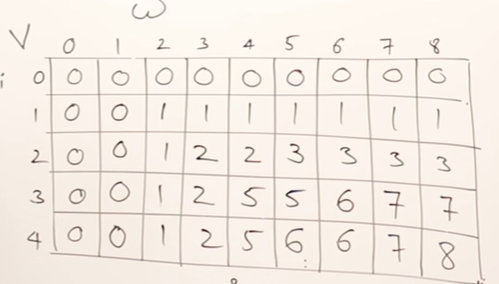 ω
V 0 1 2 3 4 5 6 7 8
i 0 0 0 0 0 0 0 0 0 0
1 0 0 1 1 1 1 1 1 1
2 0 0 1 2 2 3 3 3 3
3 0 0 1 2 5 5 6 7 7
4 0 0 1 2 5 6 6 7 8